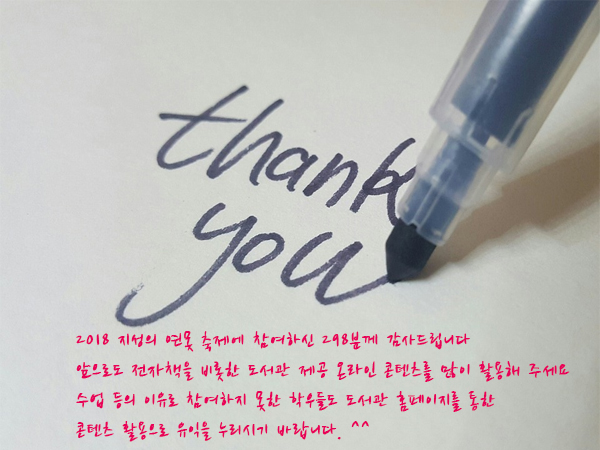 thank
you
2018 지성의 연못 축제에 참여하신 298분께 감사드립니다
앞으로도 전자책을 비롯한 도서관 제공 온라인 콘텐츠를 많이 활용해 주세요
수업 등의 이유로 참여하지 못한 학우들도 도서관 홈페이지를 통한
콘텐츠 활용으로 유익을 누리시기 바랍니다. ^^